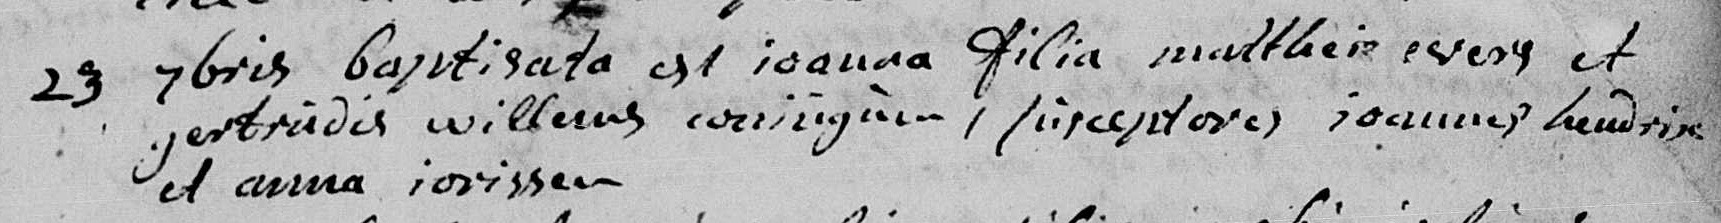 23 7bris baptisata est ioanna filia matthei evers et
gertrudis willems coniugum, susceptores ioannes hendrix
et anna iorissen